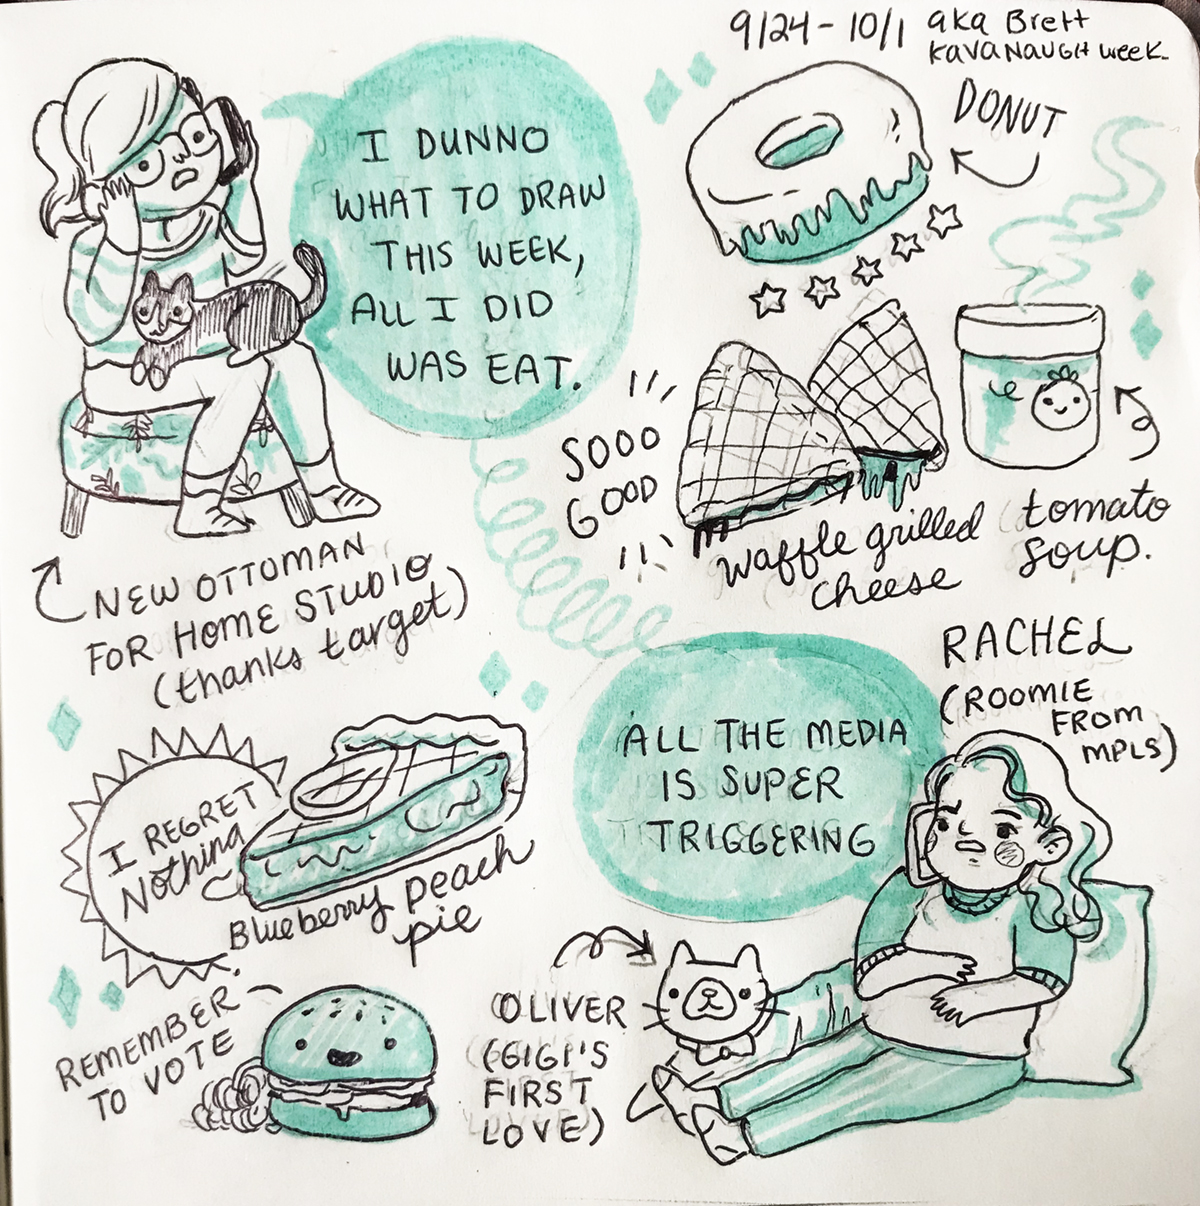 9/24 - 10/1 aka Brett
KAVANAUGH week.
I DUNNO
WHAT TO DRAW
THIS WEEK,
ALL I DID
WAS EAT.
DONUT
SOOO
GOOD
waffle grilled
cheese
tomato
soup.
NEW OTTOMAN
FOR HOME STUDIO
(thanks target)
RACHEL
(ROOMIE
FROM
MPLS)
ALL THE MEDIA
IS SUPER
TRIGGERING
I REGRET
Nothing
Blueberry peach
pie
REMEMBER
TO VOTE
OLIVER
(GIGI'S
FIRST
LOVE)